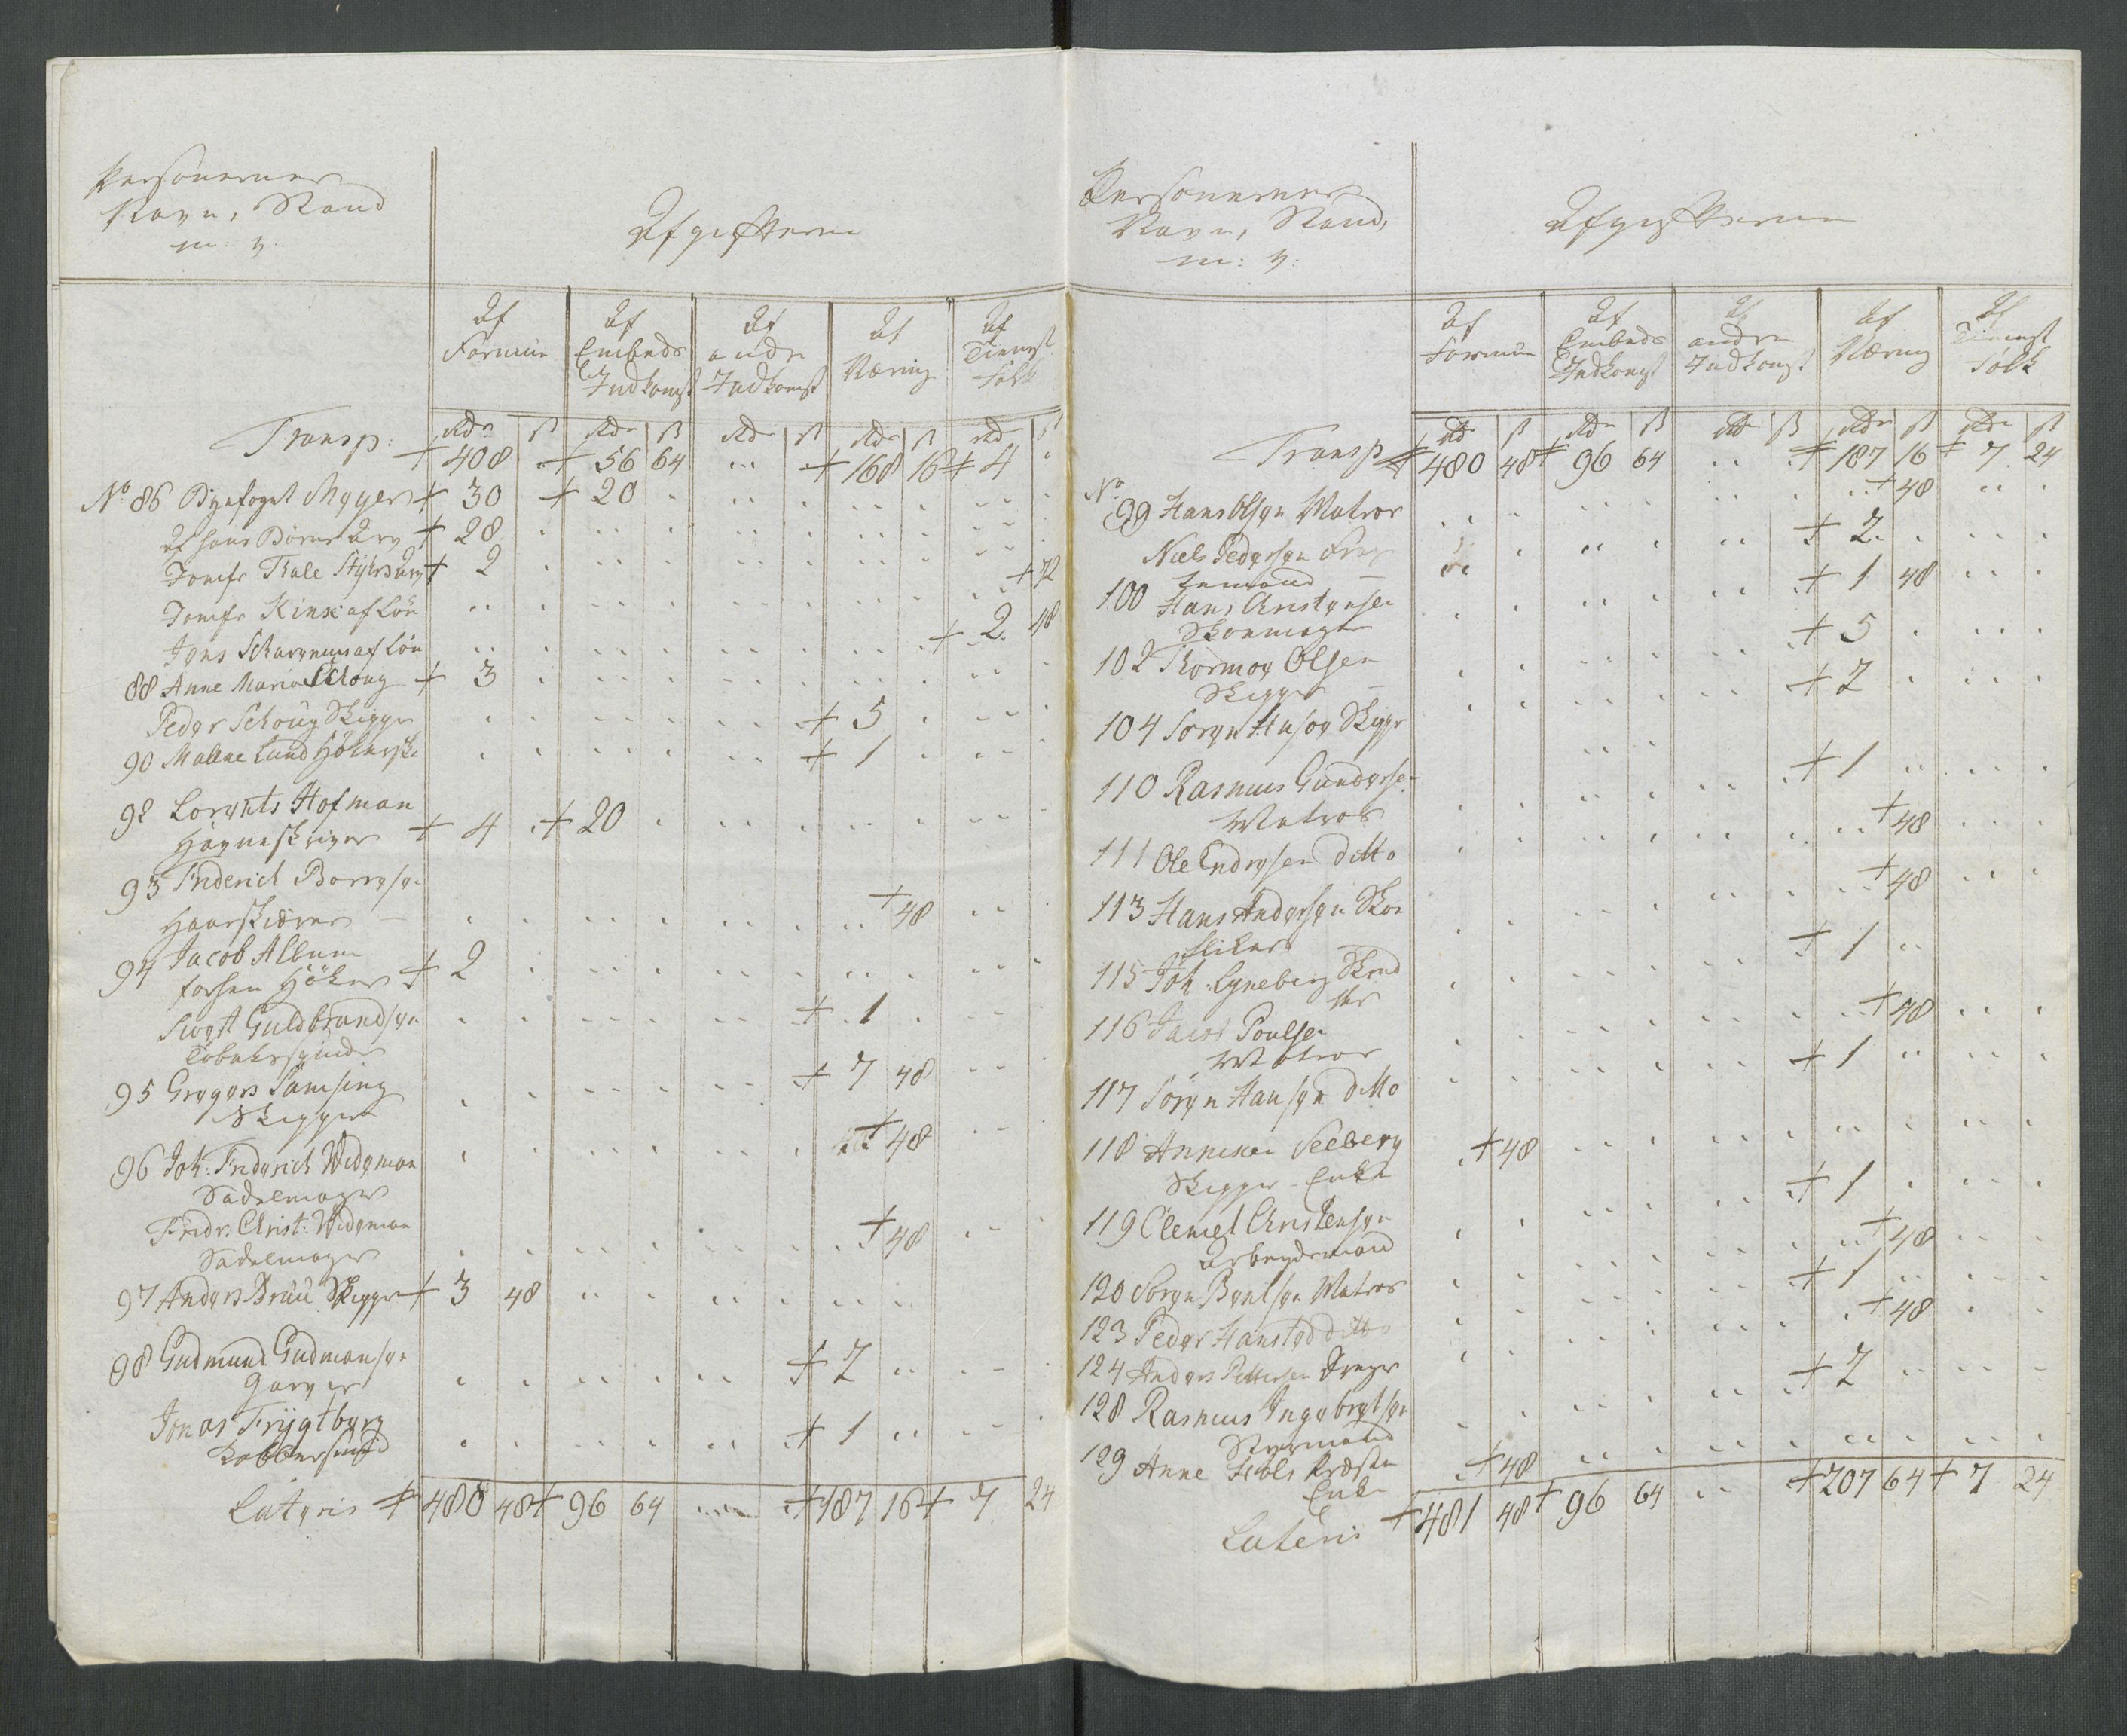 Personernes
Navn, Stand
m: v:
Afgifterne
Af Formue
Af Embeds Indkomst
Af andre Indkomst
Af Næring
Af Tienest folk
Rdr ß Rdr ß Rdr ß Rdr ß Rd ß
Transp: + 408 .. + 56 64 ... + 168 16 + 4 .
No 86 Byefoget Myger + 30 + 20
Af hans Børns Arv + 28
Jomfr Thale + 2
Jomfr Kinx af Løn + 72
Jens af Løn + 2 48
88 Anne Maria Schoug + 3
Peder Schoug Skipper + 5
90 Malene Lund Hökerske + 1
92 Lorents Hofman
Havneskriver + 4 + 20
93 Friderich Borresen
Haarskiærer + 48
94 Jacob Album
forhen Höker + 2
Sivert Guldbrandsen
Tobakspinder + 1
95 Gregers Tamsing
Skipper + 7 48
96 Joh: Friderich Wideman
Sadelmager + 48
Fridr: Christ: Wideman
Sadelmager + 48
97 Anders Bruu Skipper + 3 48
98 Gudmund Gudmansen
Garver + 2
Jonas Frygtberg
Kobbersmed + 1
Lateris + 480 48 + 96 64 ... + 187 16 + 7 24
Personernes
Navn, Stand,
m: v:
Afgifterne
Af Formue
Af Embeds Indkomst
Af andre Indkomst
Af Næring
Af Tienest folk
Rd ß Rdr ß Rd ß Rdr ß Rdr ß
Transp + 480 48 + 96 64 .. + 187 16 + 7 24
No
99 Hans Olsen Matros + 48
Niels Pedersen
+ 2
100 Hans Christensen
Skoemager + 1 48
102 Thormog Olsen
Skipper + 5
104 Soren Skipper + 2
110 Rasmus Gundersen
Matros + 1
111 Ole Endresen ditto + 48
113 Hans Andersen Skoe
fliker + 48
115 Joh: Lyneberg Skred
der + 1
116 Jacob Poulsen
Matros + 48
117 Sören Hansen ditto + 1
118 Anniken Seeberg
Skipper Enke + 48
119 Clemet Christensen
Arbeydsmand + 1
120 Soren Bentsen Matros + 48
123 Peder Hansted ditto + 1
124 Anders Pettersen + 48
128 Rasmus Ingebretsen
Styrmand + 2
129 Anne Præste
Enke + 48
Lateris + 481 48 + 96 64 .. + 207 64 + 7 24